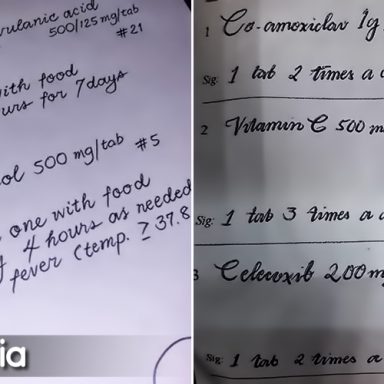 vulanic acid
500/125 mg/tab
#21
with food
urs for 7days
ol 500 mg/tab #5
one with food
4 hours as needed
fever (temp. ≥ 37.8
ia
1 Co-amoxiclav 1g
Sig: 1 tab 2 times a
2 Vitamin C 500 m
Sig: 1 tab 3 times a
3 Celecoxib 200m
Sig: 1 tab 2 times a